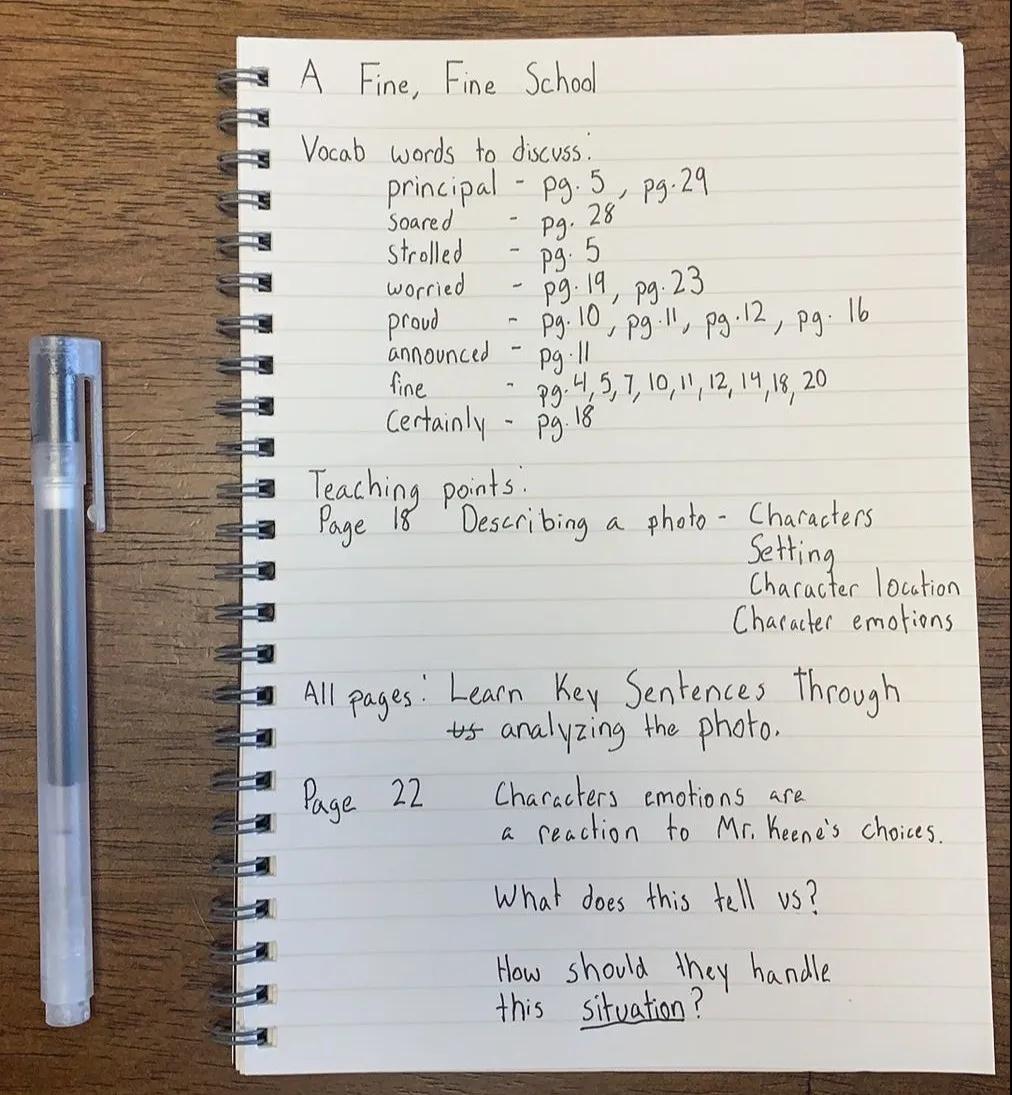 A Fine, Fine School
Vocab words to discuss:
principal - pg. 5, pg. 29
soared - pg. 28
strolled - pg. 5
worried - pg. 19, pg. 23
proud - pg. 10, pg. 11, pg. 12, pg. 16
announced - pg. 11
fine - pg. 4, 5, 7, 10, 11, 12, 14, 18, 20
Certainly - pg. 18
Teaching points:
Page 18 Describing a photo - Characters
Setting
Character location
Character emotions
All pages: Learn Key Sentences through
analyzing the photo.
Page 22 Characters emotions are
a reaction to Mr. Keene's choices.
What does this tell us?
How should they handle
this situation?